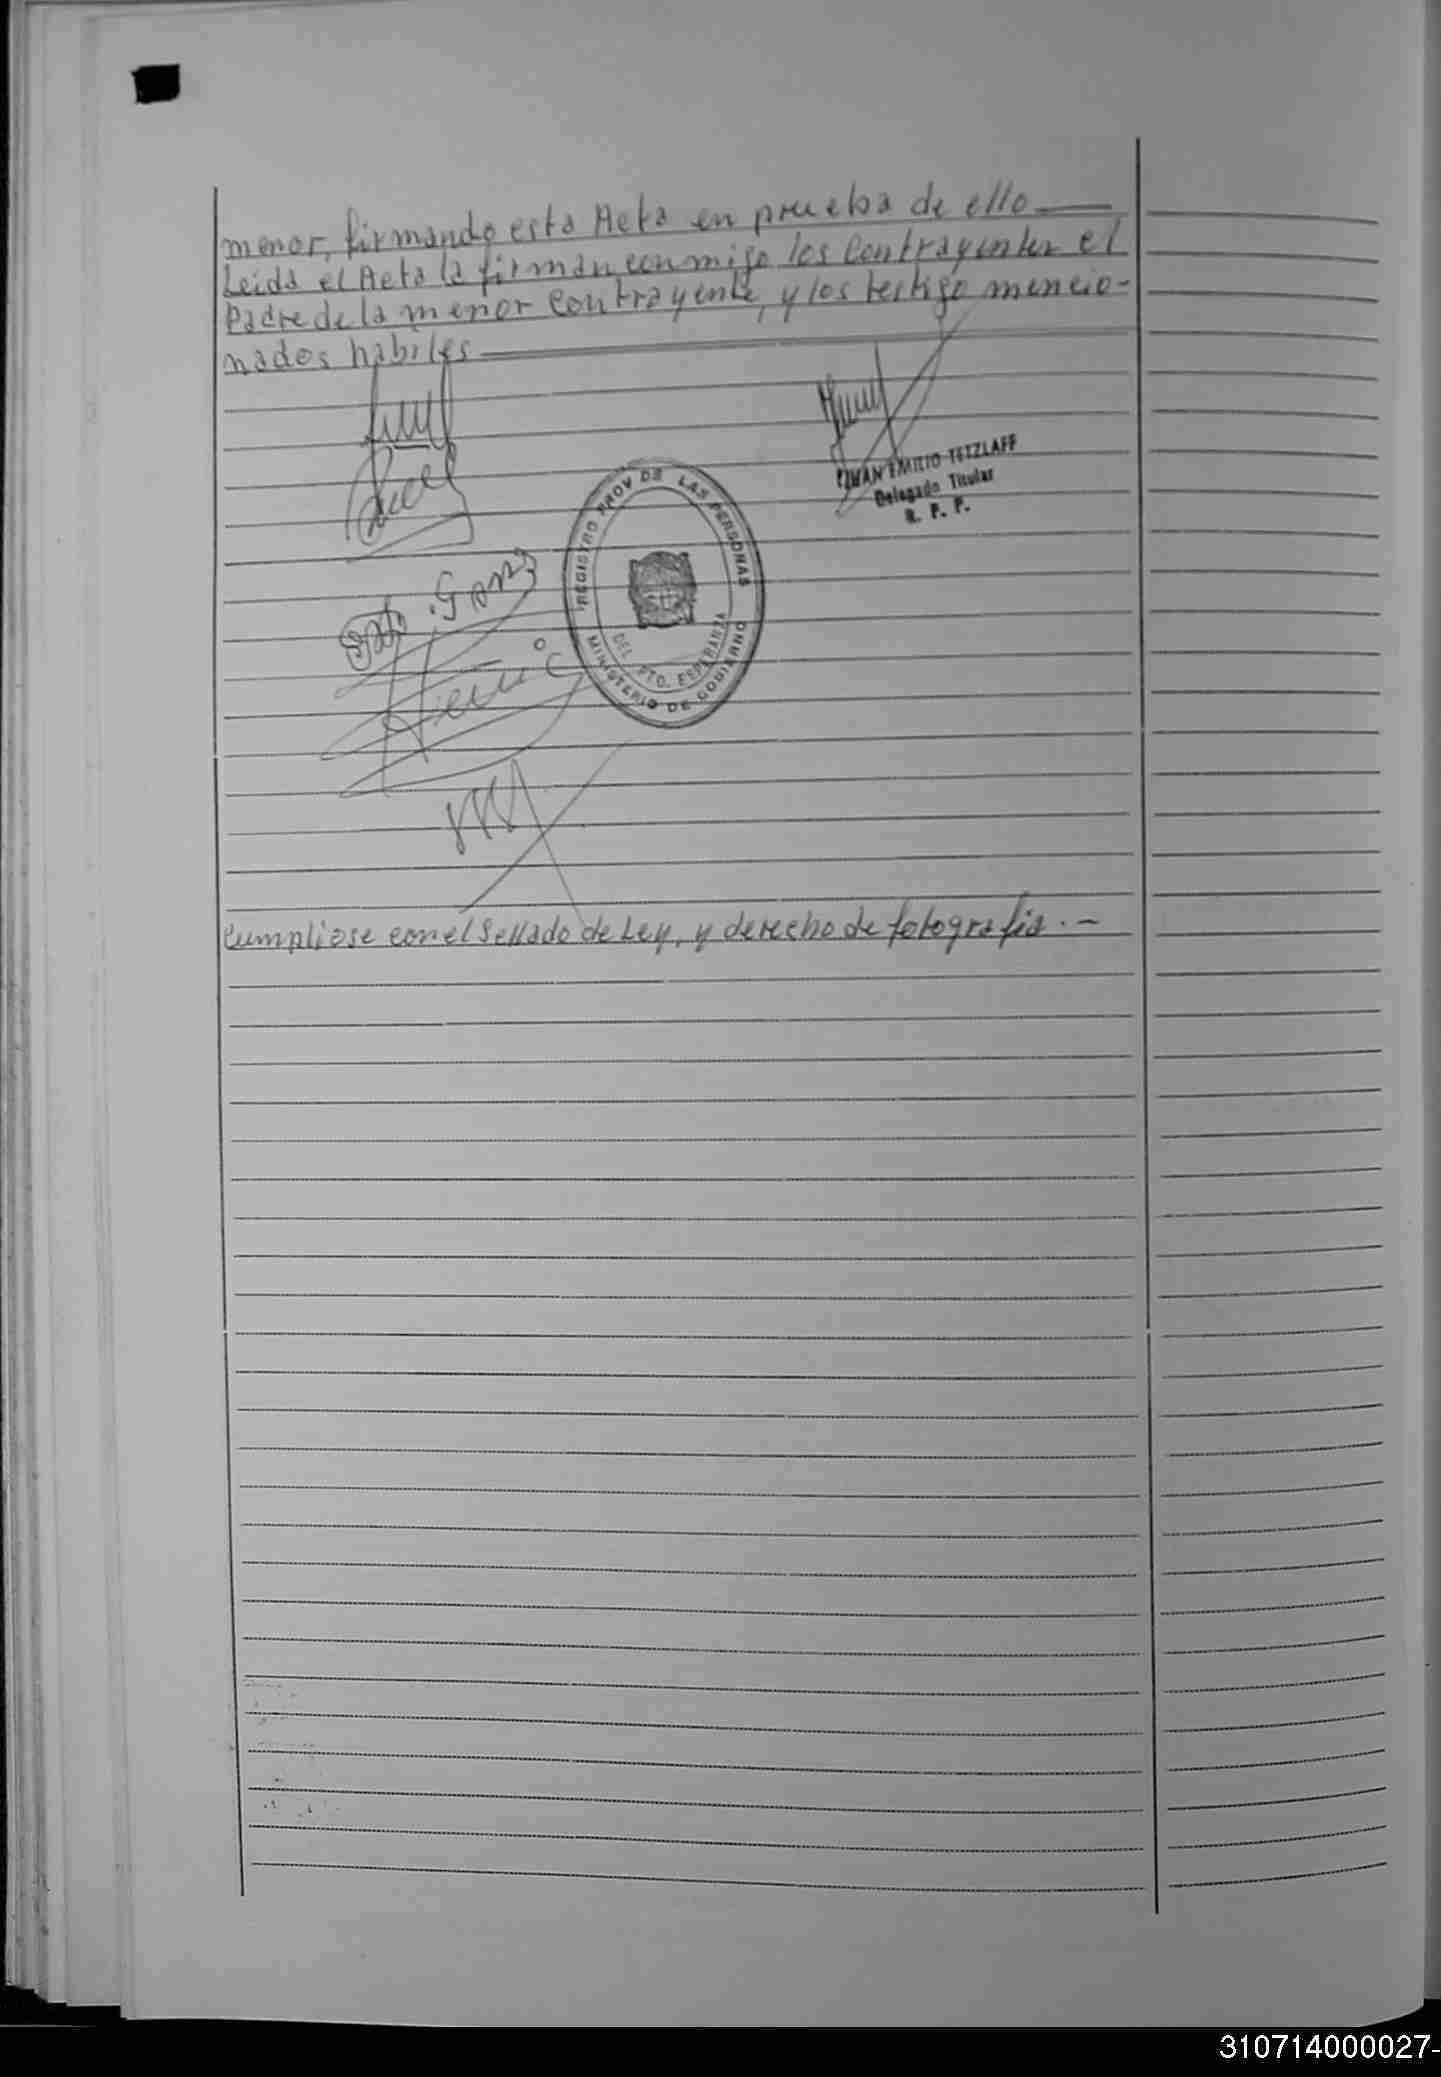 menor, firmando esta Acta en prueba de ello
Leida el Acta la firman conmigo los Contrayentes el
Padre de la menor Contrayente, y los testigo mencio-
nados habiles
JUAN EMILIO TETZLAFF
Delegado Titular
R. P. P.
REGISTRO PROV DE LAS PERSONAS
DEL PTO. ESPERANZA
MINISTERIO DE GOBIERNO
Cumpliose con el Sellado de Ley, y derecho de fotografia. -
310714000027-